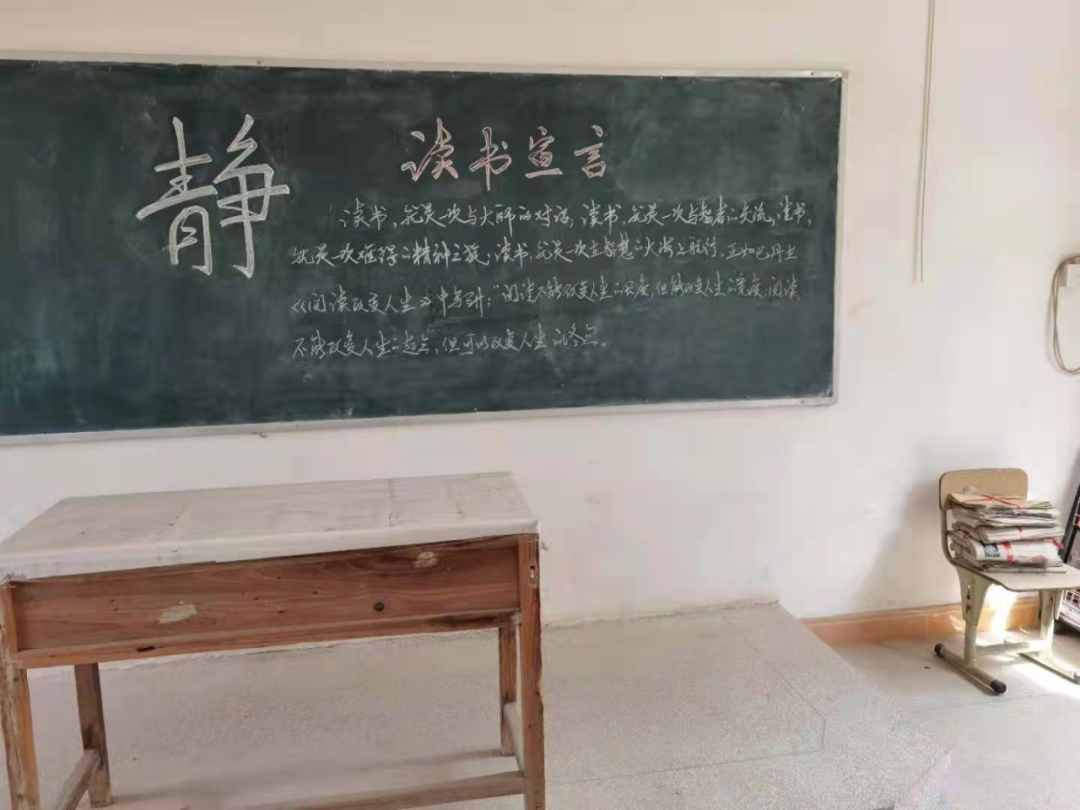 静
读书宣言
读书，就是一次与大师的对话，读书，就是一次与智者的交流，读书，
就是一次难得的精神之旅；读书，就是一次在智慧的大海上航行。正如巴丹在
《阅读改变人生》中写到：“阅读不能改变人生的长度，但能改变人生的宽度，阅读
不能改变人生的起点，但可以改变人生的终点。